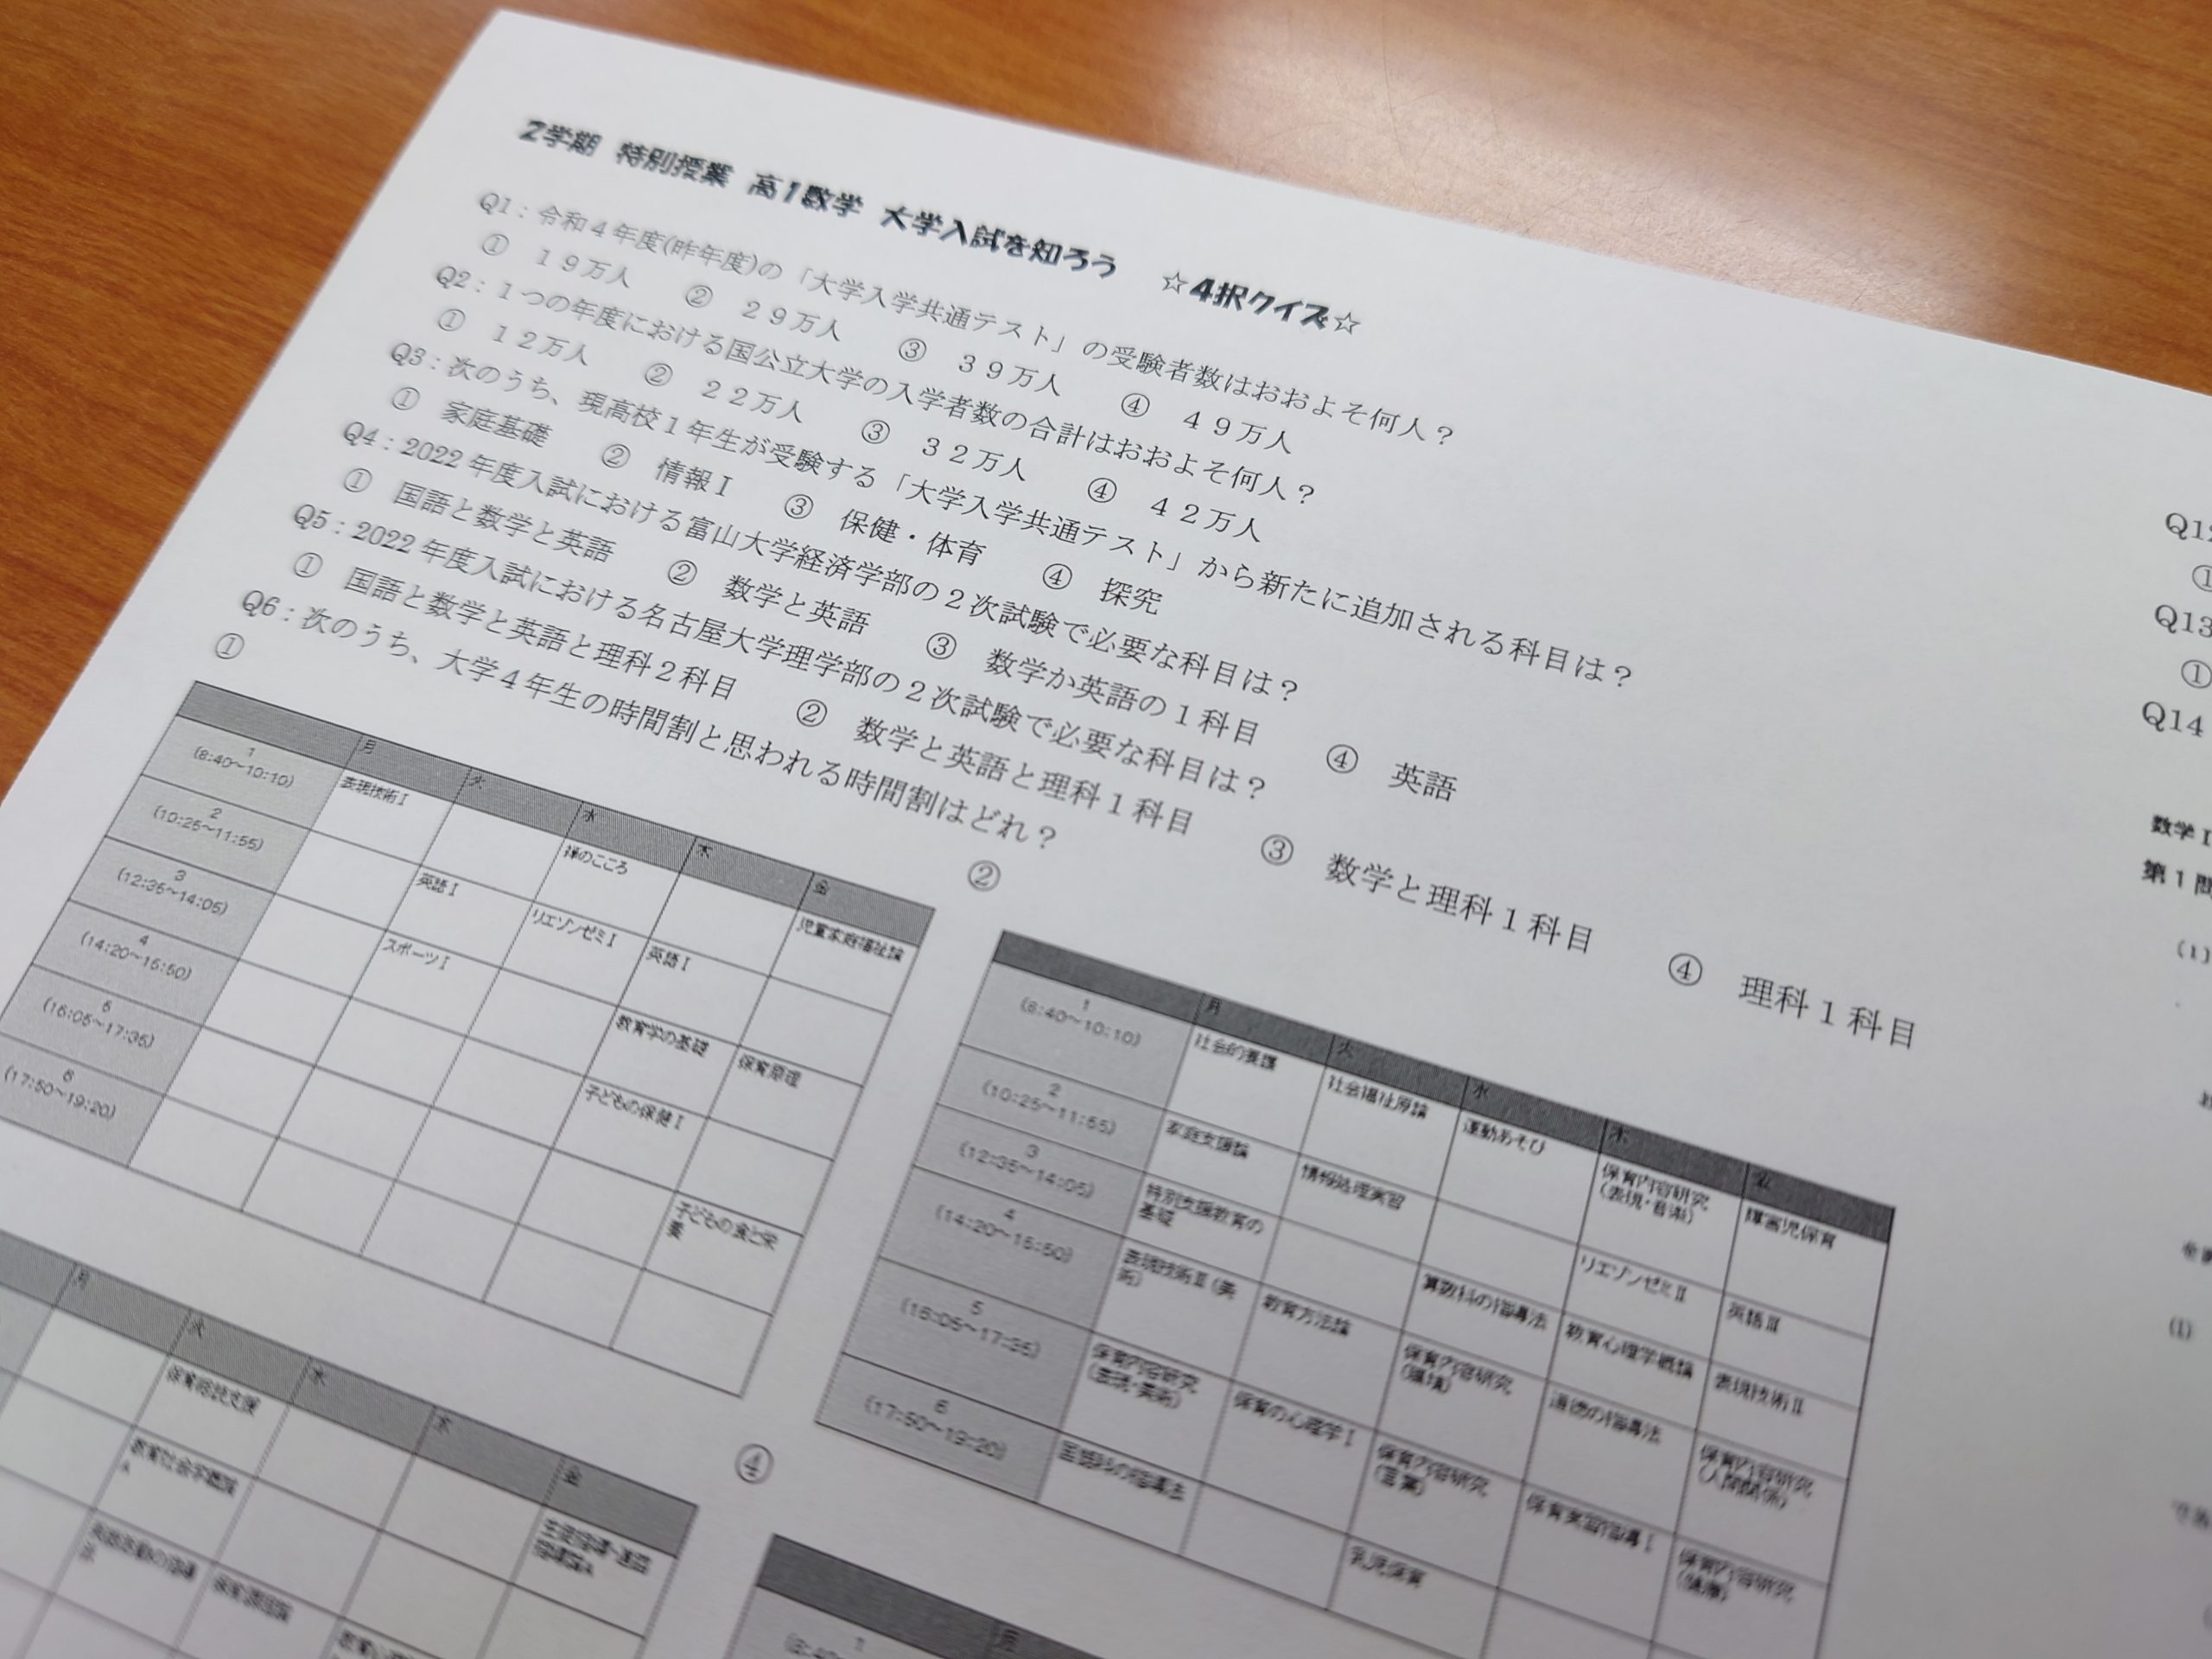 2学期 特別授業 高1数学 大学入試を知ろう ☆4択クイズ☆
Q1：令和４年度(昨年度)の「大学入学共通テスト」の受験者数はおおよそ何人？
① １９万人 ② ２９万人 ③ ３９万人 ④ ４９万人
Q2：１つの年度における国公立大学の入学者数の合計はおおよそ何人？
① １２万人 ② ２２万人 ③ ３２万人 ④ ４２万人
Q3：次のうち、現高校１年生が受験する「大学入学共通テスト」から新たに追加される科目は？
① 家庭基礎 ② 情報Ⅰ ③ 保健・体育 ④ 探究
Q4：2022年度入試における富山大学経済学部の２次試験で必要な科目は？
① 国語と数学と英語 ② 数学と英語 ③ 数学か英語の１科目 ④ 英語
Q5：2022年度入試における名古屋大学理学部の２次試験で必要な科目は？
① 国語と数学と英語と理科２科目 ② 数学と英語と理科１科目 ③ 数学と理科１科目 ④ 理科１科目
Q6：次のうち、大学４年生の時間割と思われる時間割はどれ？
①
月 火 水 木 金
1 (8:40～10:10) 表現技術Ⅰ 禅のこころ 児童家庭福祉論
2 (10:25～11:55) 英語Ⅰ リエゾンゼミⅠ 英語Ⅰ
3 (12:35～14:05) スポーツⅠ 教育学の基礎 保育原理
4 (14:20～15:50) 子どもの保健Ⅰ
5 (16:05～17:35) 子どもの食と栄養
6 (17:50～19:20)
②
月 火 水 木 金
1 (8:40～10:10) 社会的養護 社会福祉原論 運動あそび 保育内容研究(表現・音楽) 障害児保育
2 (10:25～11:55) 家庭支援論 情報処理実習 リエゾンゼミⅡ 英語Ⅲ
3 (12:35～14:05) 特別支援教育の基礎 算数科の指導法 教育心理学概論 表現技術Ⅱ
4 (14:20～15:50) 表現技術Ⅲ(美術) 教育方法論 保育内容研究(環境) 道徳の指導法 保育内容研究(人間関係)
5 (16:05～17:35) 保育内容研究(表現・美術) 保育の心理学Ⅰ 保育内容研究(言葉) 保育実習指導Ⅰ 保育内容研究(健康)
6 (17:50～19:20) 国語科の指導法 乳児保育
月 火 水 木 金
保育相談支援
教育社会学概論A
④
1
月
Q12
①
Q13
①
Q14
数学Ⅰ
第１問
(1)
(1)